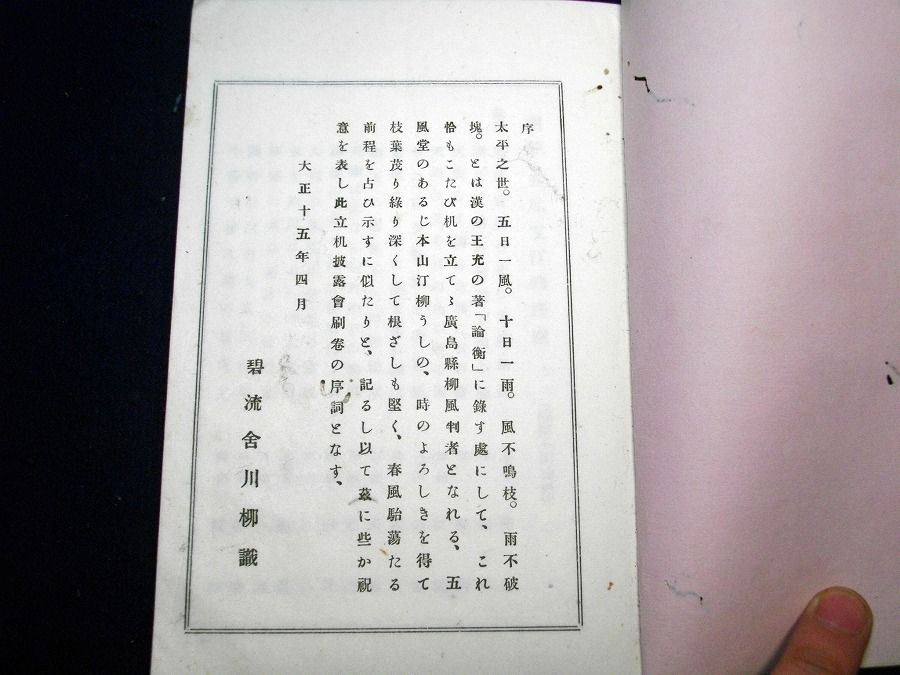 序
太平之世。五日一風。十日一雨。風不鳴枝。雨不破
塊。とは漢の王充の著「論衡」に錄す處にして、これ
恰もこたび机を立てゝ廣島縣柳風判者となれる、五
風堂のあるじ本山汀柳うしの、時のよろしきを得て
枝葉茂り綠り深くして根ざしも堅く、春風駘蕩たる
前程を占ひ示すに似たりと、記るし以て茲に些か祝
意を表し此立机披露會刷卷の序詞となす、
大正十五年四月
碧流舍川柳識